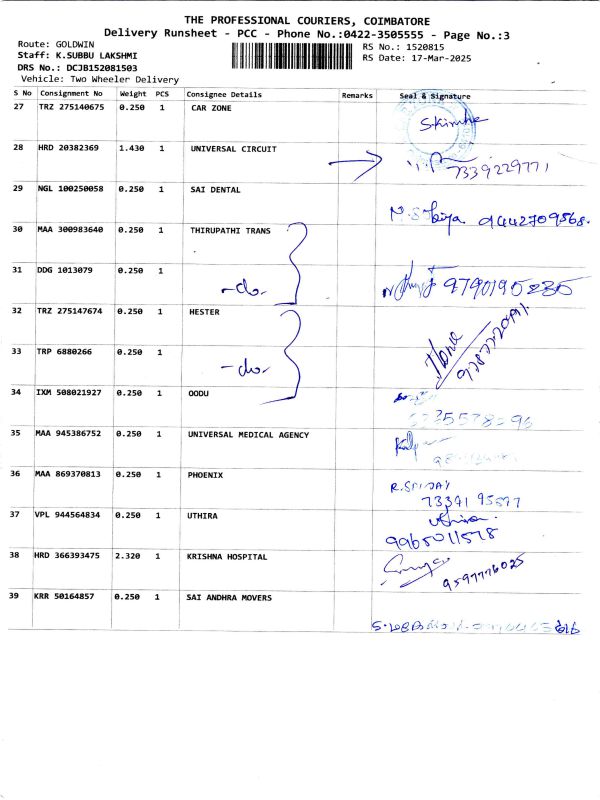 THE PROFESSIONAL COURIERS, COIMBATORE
Delivery Runsheet - PCC - Phone No.:0422-3505555 - Page No.:3
Route: GOLDWIN
Staff: K.SUBBU LAKSHMI
DRS No.: DCJB152081503
Vehicle: Two Wheeler Delivery
RS No.: 1520815
RS Date: 17-Mar-2025
S No Consignment No Weight PCS Consignee Details Remarks Seal & Signature
27 TRZ 275140675 0.250 1 CAR ZONE
28 HRD 20382369 1.430 1 UNIVERSAL CIRCUIT 7339229771
29 NGL 100250058 0.250 1 SAI DENTAL 9442709568.
30 MAA 300983640 0.250 1 THIRUPATHI TRANS
31 DDG 1013079 0.250 1 -do- 9790195235
32 TRZ 275147674 0.250 1 HESTER
33 TRP 6880266 0.250 1 -do-
34 IXM 508021927 0.250 1 OODU
35 MAA 945386752 0.250 1 UNIVERSAL MEDICAL AGENCY
36 MAA 869370813 0.250 1 PHOENIX
37 VPL 944564834 0.250 1 UTHIRA uthira.
9965011578
38 HRD 366393475 2.320 1 KRISHNA HOSPITAL 9597776025
39 KRR 50164857 0.250 1 SAI ANDHRA MOVERS